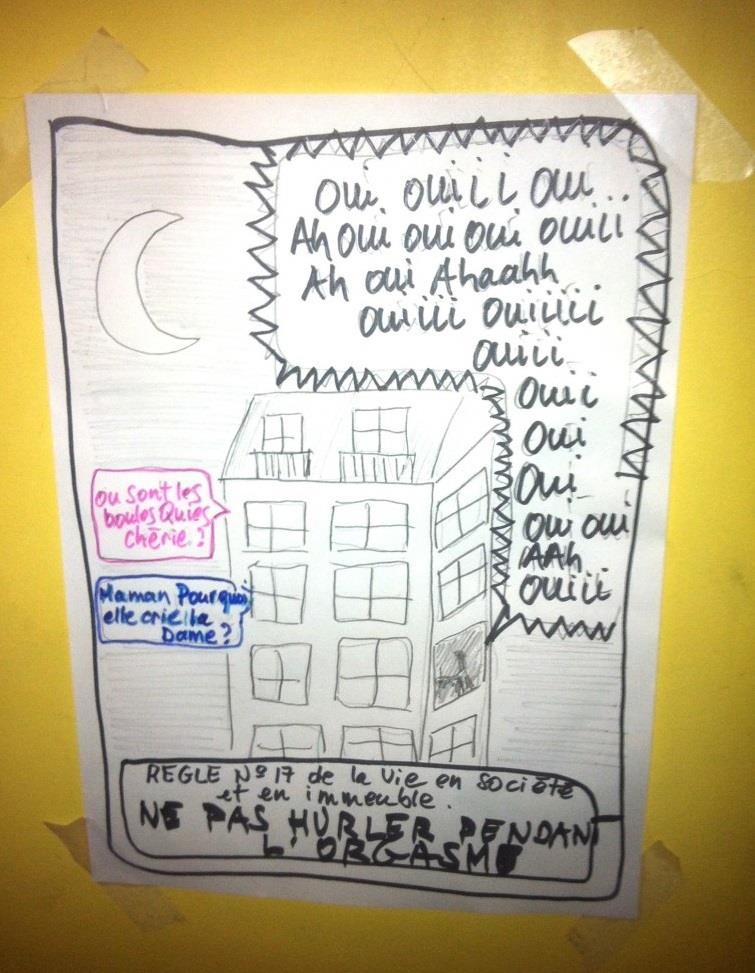 Oui ouiiii oui...
Ah oui oui oui ouiii
Ah oui Ahaahh
ouiiii ouiiiiii
ouiii
Ouiii
Oui
Oui
oui oui
AAh
ouiiii
où sont les
boules Quies
chérie ?
Maman Pourquoi
elle crie la
Dame ?
REGLE Nº17 de la Vie en société
et en immeuble.
NE PAS HURLER PENDANT
L'ORGASME